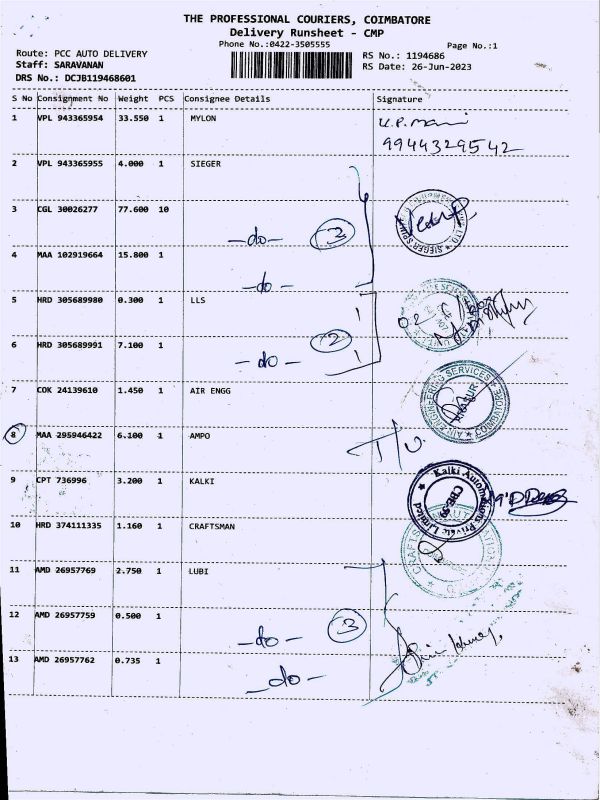 THE PROFESSIONAL COURIERS, COIMBATORE
Delivery Runsheet - CMP
Phone No.:0422-3505555
Page No.:1
Route: PCC AUTO DELIVERY
RS No.: 1194686
Staff: SARAVANAN
RS Date: 26-Jun-2023
DRS No.: DCJB119468601
S No Consignment No Weight PCS Consignee Details Signature
1 VPL 943365954 33.550 1 MYLON
K.P. Mani
9944329542
2 VPL 943365955 4.000 1 SIEGER
3 CGL 30026277 77.600 10
-do- 3
4 MAA 102919664 15.800 1
-do-
5 HRD 305689980 0.300 1 LLS
6 HRD 305689991 7.100 1
-do- 2
7 COK 24139610 1.450 1 AIR ENGG
AIR ENGINEERING SERVICES COIMBATORE
8 MAA 295946422 6.100 1 AMPO
9 CPT 736996 3.200 1 KALKI
Kalki Automations Private Limited
CBE-59
10 HRD 374111335 1.160 1 CRAFTSMAN
11 AMD 26957769 2.750 1 LUBI
12 AMD 26957759 0.500 1
-do- 3
13 AMD 26957762 0.735 1
-do-